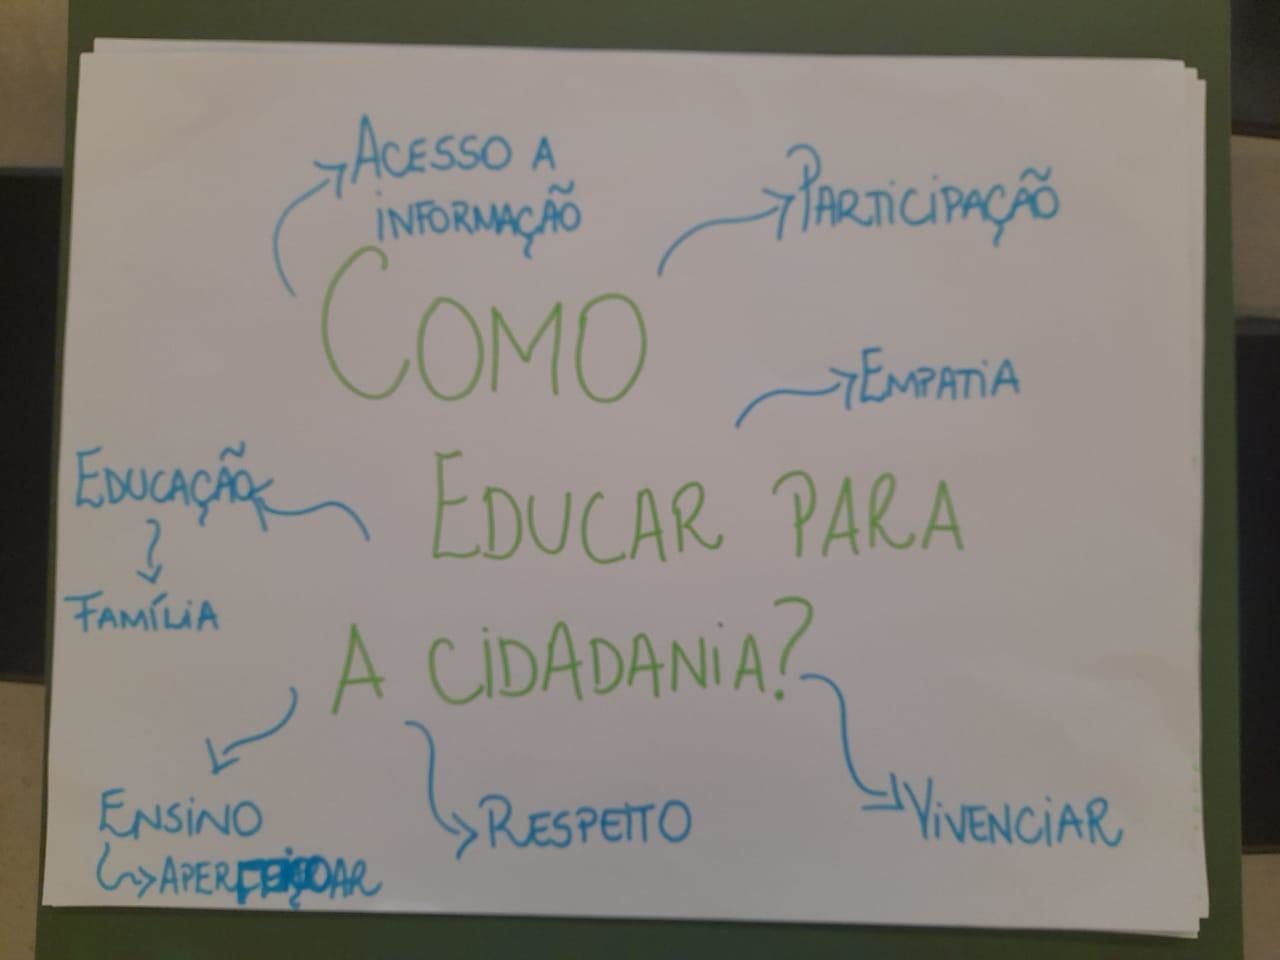 ACESSO A
INFORMAÇÃO
PARTICIPAÇÃO
COMO
EMPATIA
EDUCAÇÃO
EDUCAR PARA
FAMÍLIA
A CIDADANIA?
ENSINO
APERFEIÇOAR
RESPEITO
VIVENCIAR